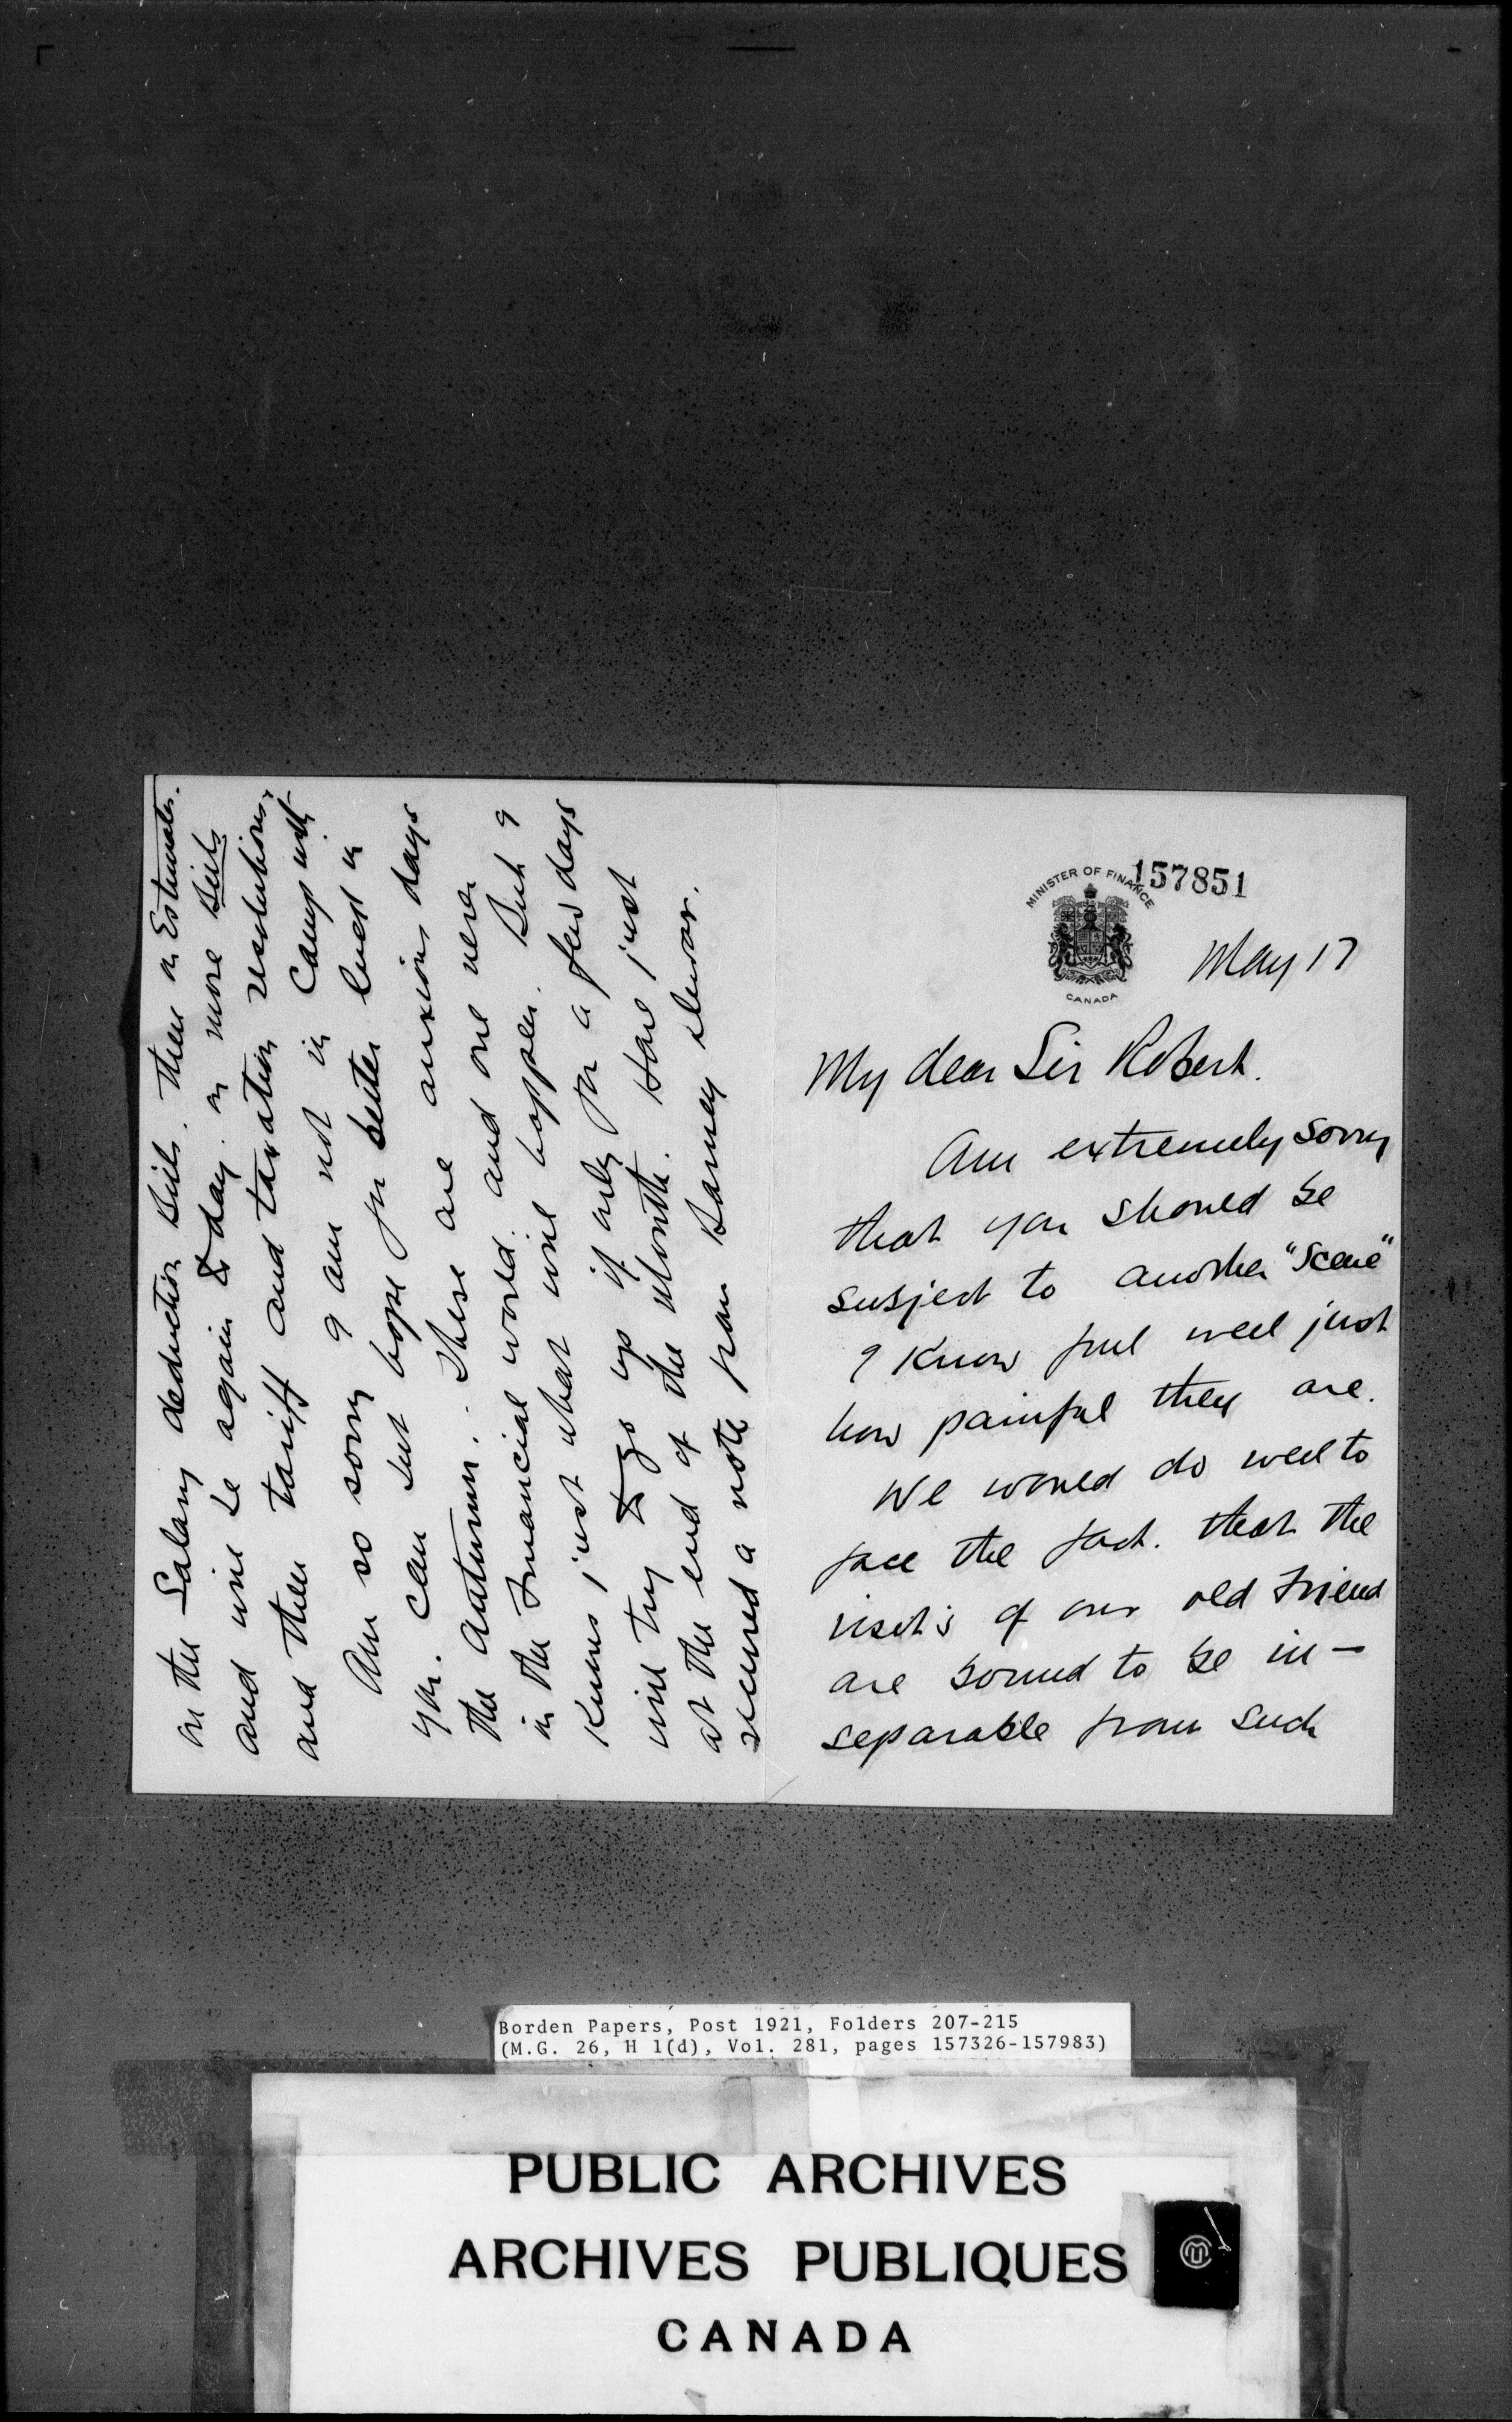 157851
MINISTER OF FINANCE
CANADA
May 17
My dear Sir Robert.
Am extremely sorry
that you should be
subject to another "Scene"
I know full well just
how painful they are.
We would do well to
face the fact. that the
visits of our old friend
are bound to be in-
separable from such
on the Salary deduction Bill. Then on Estimates.
and will be again to day. on more Bills
and then tariff and taxation resolutions.
Am so sorry I am not in Camp with
you. Can but hope for better luck in
the autumn. These are anxious days
in the Financial world. and one never
knows just what will happen. But I
will try to go up if only for a few days
at the end of the month. Have just
received a note from Harney
Borden Papers, Post 1921, Folders 207-215
(M.G. 26, H 1(d), Vol. 281, pages 157326-157983)
PUBLIC ARCHIVES
ARCHIVES PUBLIQUES
CANADA